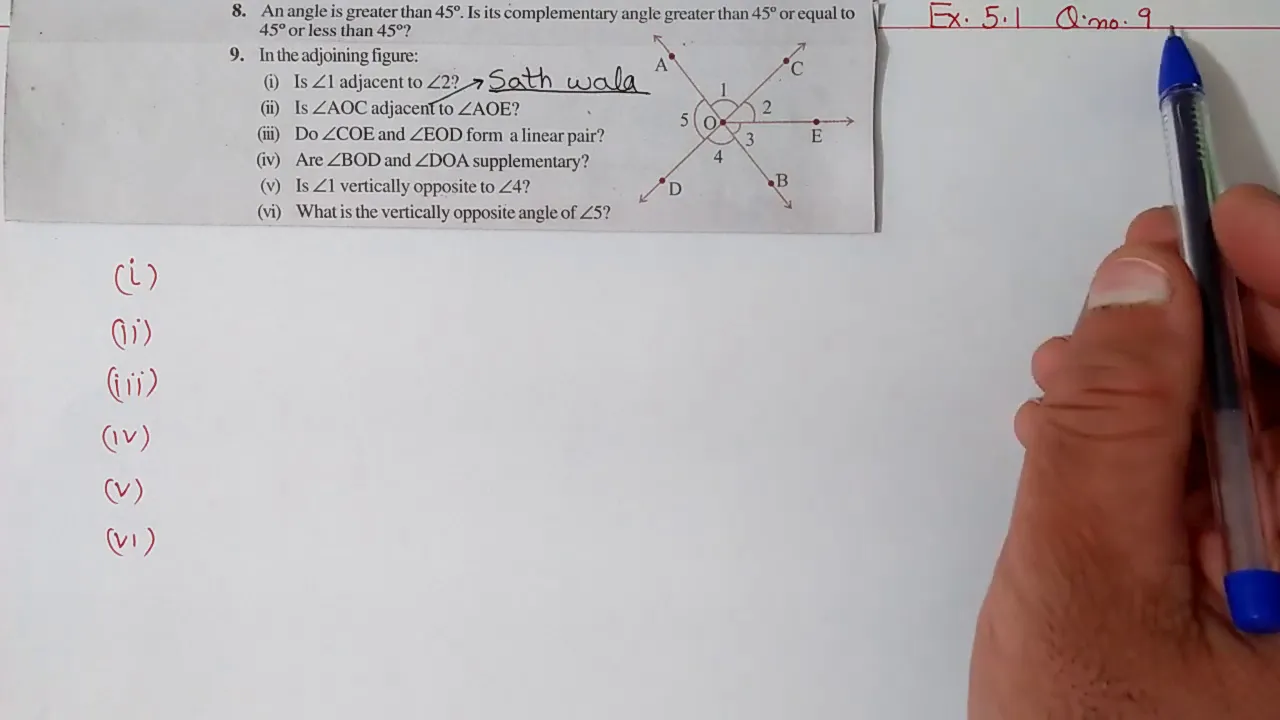 8. An angle is greater than 45°. Is its complementary angle greater than 45° or equal to
45° or less than 45°?
Ex. 5.1 Q.no. 9
9. In the adjoining figure:
(i) Is ∠1 adjacent to ∠2? → Sath wala
(ii) Is ∠AOC adjacent to ∠AOE?
(iii) Do ∠COE and ∠EOD form a linear pair?
(iv) Are ∠BOD and ∠DOA supplementary?
(v) Is ∠1 vertically opposite to ∠4?
(vi) What is the vertically opposite angle of ∠5?
A
C
1
2
5
O
3
E
4
B
D
(i)
(ii)
(iii)
(iv)
(v)
(vi)